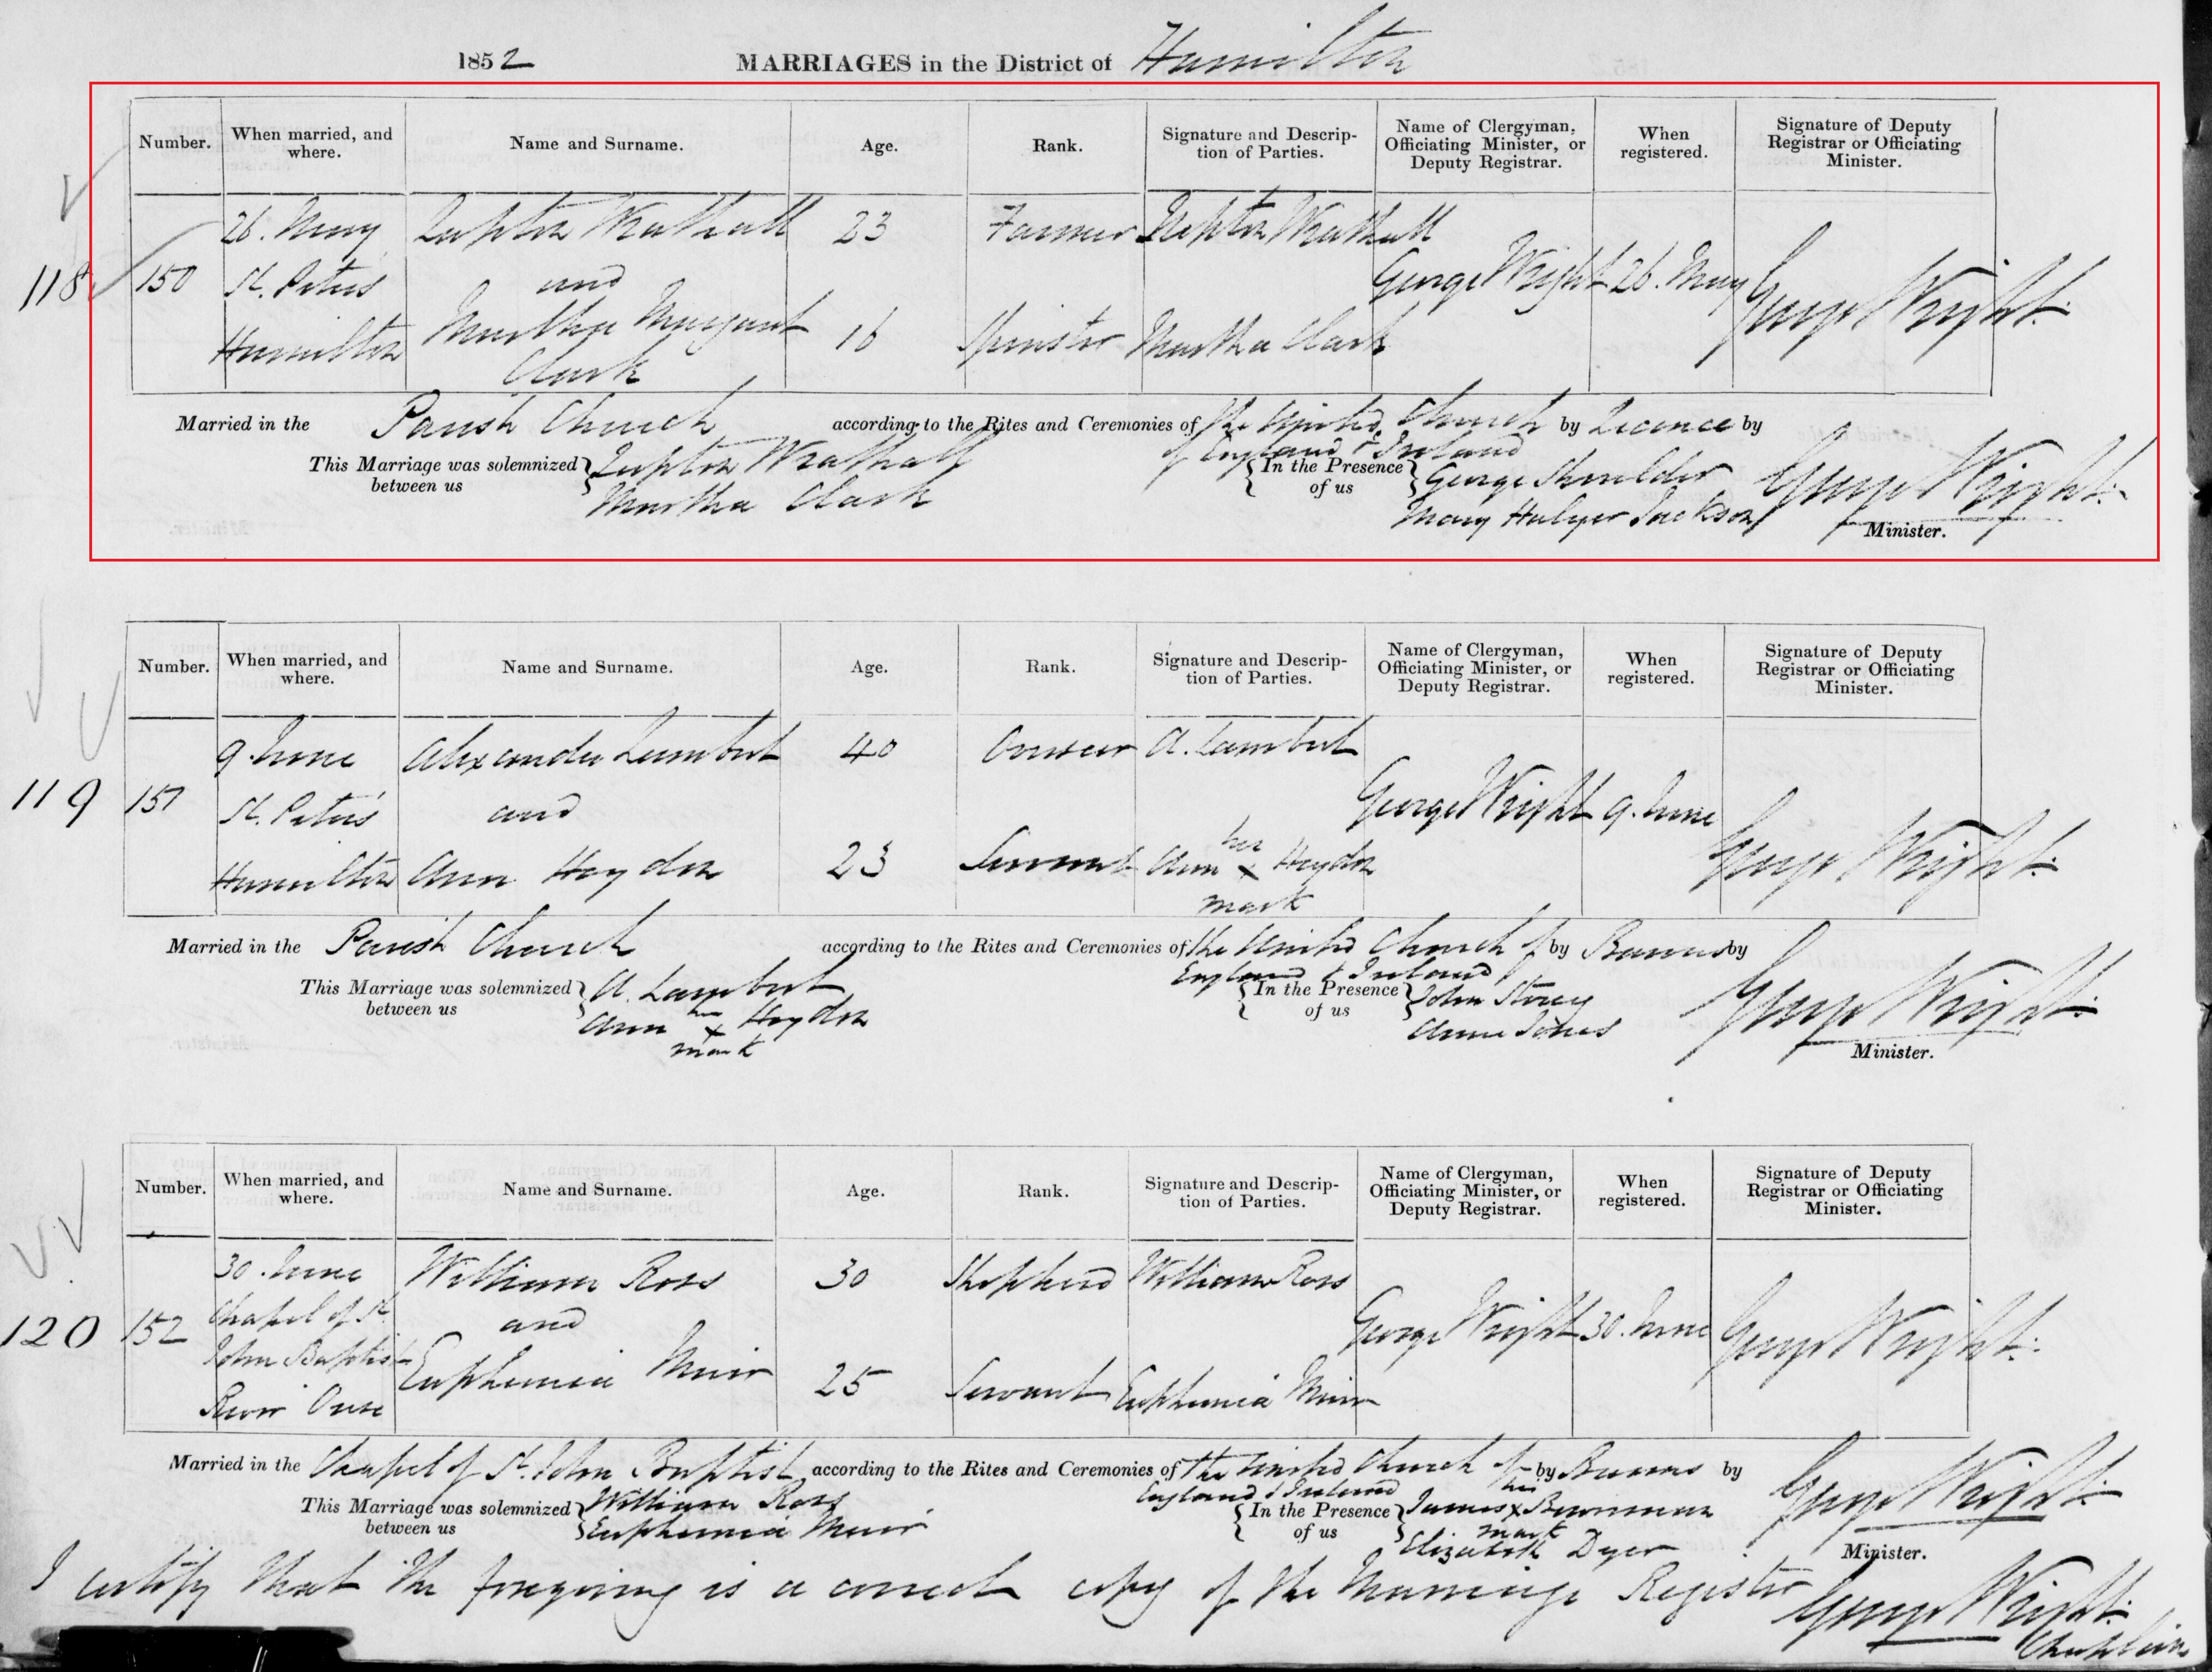 1852 MARRIAGES in the District of Hamilton
Number. When married, and where. Name and Surname. Age. Rank. Signature and Description of Parties. Name of Clergyman, Officiating Minister, or Deputy Registrar. When registered. Signature of Deputy Registrar or Officiating Minister.
26. May Lupton Wrathall 23 Farmer Lupton Wrathall
118 150 St. Peters and George Wright 26. May George Wright
Hamilton Martha Margaret 16 Spinster Martha Clark
Clark
Married in the Parish Church according to the Rites and Ceremonies of the United Church by Licence by
of England & Ireland
This Marriage was solemnized between us Lupton Wrathall In the Presence of us George Shoulder George Wright
Martha Clark Mary Jackson
Minister.
Number. When married, and where. Name and Surname. Age. Rank. Signature and Description of Parties. Name of Clergyman, Officiating Minister, or Deputy Registrar. When registered. Signature of Deputy Registrar or Officiating Minister.
9. June Alexander Lambert 40 A. Lambert
119 151 St. Peter's and George Wright 9. June George Wright
Hamilton Ann Haydon 23 Servant Ann her x Haydon
mark
Married in the Parish Church according to the Rites and Ceremonies of the United Church of by Banns by
England & Ireland
This Marriage was solemnized between us A. Lambert In the Presence of us John Storey George Wright
Ann her x Haydon Anne Jones
mark
Minister.
Number. When married, and where. Name and Surname. Age. Rank. Signature and Description of Parties. Name of Clergyman, Officiating Minister, or Deputy Registrar. When registered. Signature of Deputy Registrar or Officiating Minister.
30. June William Ross 30 Shepherd William Ross
120 152 Chapel of St. and George Wright 30. June George Wright
John Baptist Euphemia Muir 25 Servant Euphemia Muir
River Ouse
Married in the Chapel of St. John Baptist according to the Rites and Ceremonies of the United Church of by Banns by
England & Ireland
This Marriage was solemnized between us William Ross In the Presence of us James his x Bowerman George Wright
Euphemia Muir mark
Elizabeth Dyer
Minister.
I certify that the foregoing is a correct copy of the Marriage Register George Wright
Chaplain